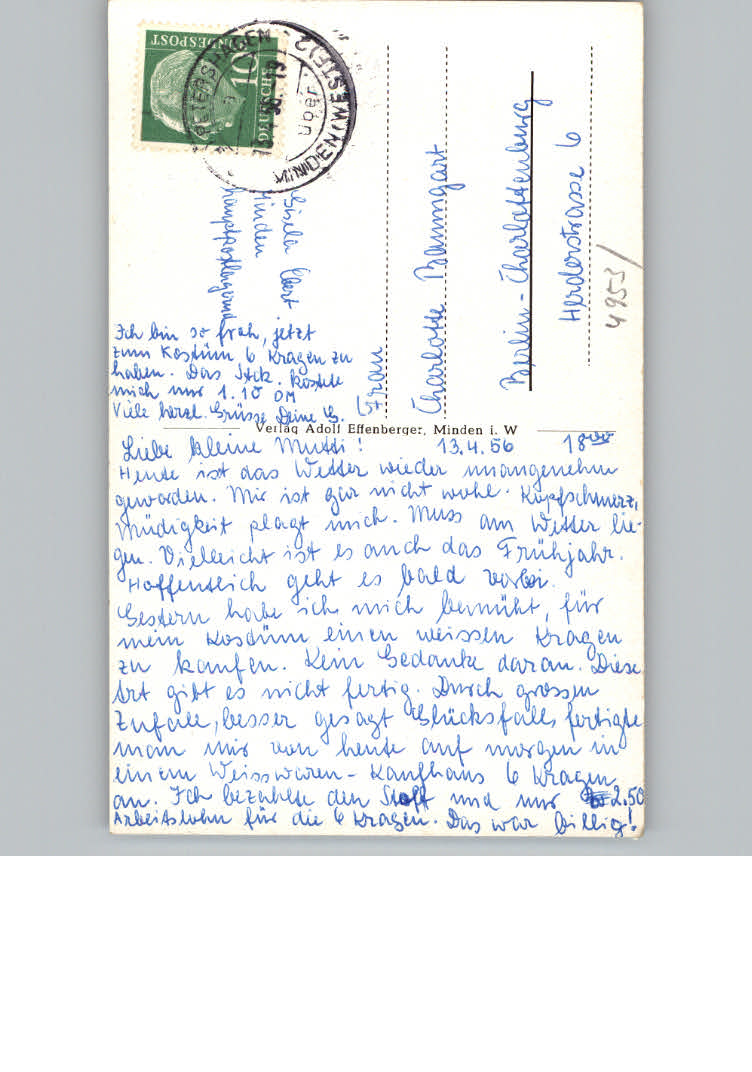 DEUTSCHE
BUNDESPOST
10
PETERSHAGEN
über
MINDEN (WESTF) 2
Gisela Ebert
Minden
hauptpostlagernd
Frau
Charlotte Baumgart
Berlin-Charlottenburg
Herderstrasse 6
4953/
Ich bin so froh, jetzt
zum Kostüm 6 Kragen zu
haben. Das Stck. kostete
mich nur 1.10 DM
Viele herzl. Grüsse Deine G.
Verlag Adolf Effenberger, Minden i. W
Liebe kleine Mutti! 13.4.56 18⁰⁰
Heute ist das Wetter wieder unangenehm
geworden. Mir ist gar nicht wohl. Kopfschmerz,
Müdigkeit plagt mich. Muss am Wetter lie-
gen. Vielleicht ist es auch das Frühjahr.
Hoffentlich geht es bald vorbei.
Gestern habe ich mich bemüht, für
mein Kostüm einen weissen Kragen
zu kaufen. Kein Gedanke daran. Diese
Art gibt es nicht fertig. Durch grossen
Zufall, besser gesagt Glücksfall, fertigte
man mir von heute auf morgen in
einem Weisswaren-Kaufhaus 6 Kragen
an. Ich bezahlte den Stoff und nur 2.50
Arbeitslohn für die 6 Kragen. Das war billig!